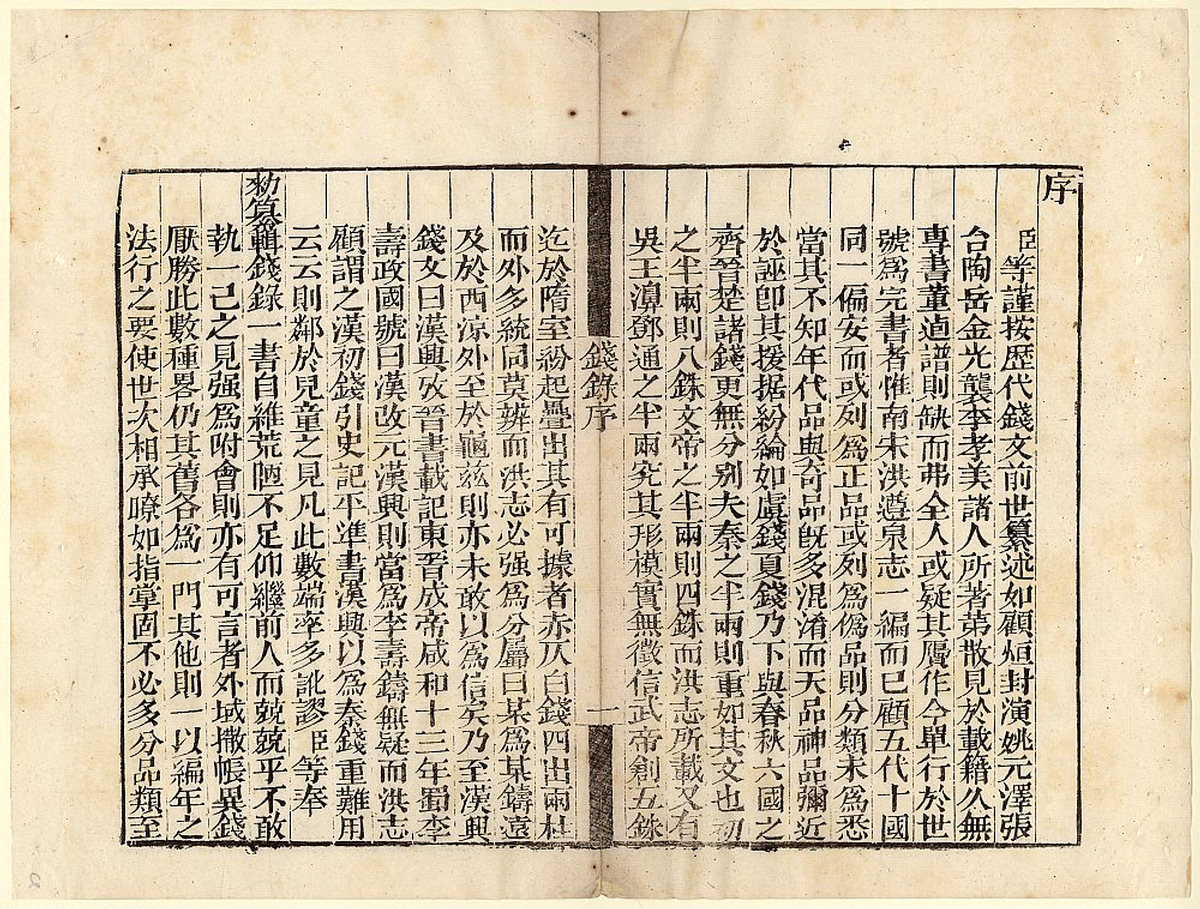 序
臣等謹按歷代錢文前世纂述如顧烜封演姚元澤張
台陶岳金光襲李孝美諸人所著第散見於載籍久無
專書董逌譜則缺而弗全人或疑其贋作今單行於世
號爲完書者惟南宋洪遵泉志一編而已顧五代十國
同一偏安而或列爲正品或列爲僞品則分類未爲悉
當其不知年代品與奇品旣多混淆而天品神品彌近
於誣卽其援据紛綸如虞錢夏錢乃下與春秋六國之
齊晉楚諸錢更無分别夫秦之半兩則重如其文也初
之半兩則八銖文帝之半兩則四銖而洪志所載又有
吳王濞鄧通之半兩究其形模實無徵信武帝創五銖
錢錄序
一
迄於隋室紛起疊出其有可據者赤仄白錢四出兩柱
而外多統同莫辨而洪志必强爲分屬曰某爲某鑄遠
及於西涼外至於龜兹則亦未敢以爲信矣乃至漢興
錢文曰漢興攷晉書載記東晉成帝咸和十三年蜀李
壽政國號曰漢改元漢興則當爲李壽鑄無疑而洪志
顧謂之漢初錢引史記平準書漢興以爲秦錢重難用
云云則鄰於兒童之見凡此數端率多訛謬臣等奉
勑纂輯錢錄一書自維荒陋不足仰繼前人而兢兢乎不敢
執一己之見强爲附會則亦有可言者外域撒帳異錢
厭勝此數種畧仍其舊各爲一門其他則一以編年之
法行之要使世次相承瞭如指掌固不必多分品類至
2